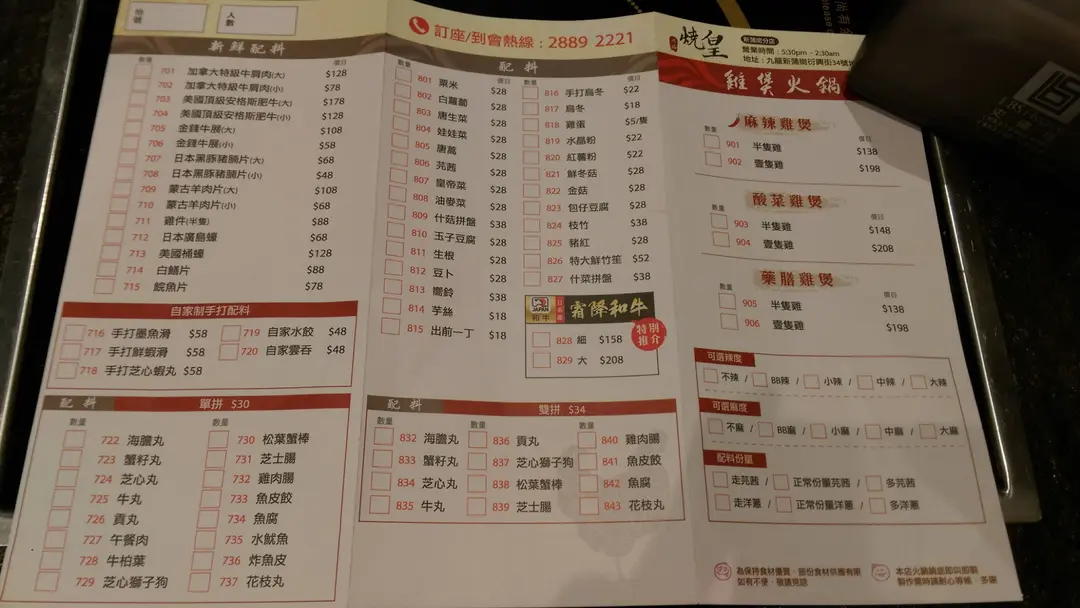 枱號
人數
新鮮配料
數量 價目
701 加拿大特級牛肩肉(大) $128
702 加拿大特級牛肩肉(小) $78
703 美國頂級安格斯肥牛(大) $178
704 美國頂級安格斯肥牛(小) $128
705 金錢牛展(大) $108
706 金錢牛展(小) $58
707 日本黑豚豬腩片(大) $68
708 日本黑豚豬腩片(小) $48
709 蒙古羊肉片(大) $108
710 蒙古羊肉片(小) $68
711 雞件(半隻) $88
712 日本廣島蠔 $68
713 美國桶蠔 $128
714 白鱔片 $88
715 鯇魚片 $78
自家制手打配料
716 手打墨魚滑 $58 719 自家水餃 $48
717 手打鮮蝦滑 $58 720 自家雲吞 $48
718 手打芝心蝦丸 $58
配料 單拼 $30
數量 數量
722 海膽丸 730 松葉蟹棒
723 蟹籽丸 731 芝士腸
724 芝心丸 732 雞肉腸
725 牛丸 733 魚皮餃
726 貢丸 734 魚腐
727 午餐肉 735 水魷魚
728 牛柏葉 736 炸魚皮
729 芝心獅子狗 737 花枝丸
訂座/到會熱線 : 2889 2221
配料
數量 價目 數量 價目
801 粟米 $28 816 手打烏冬 $22
802 白蘿蔔 $28 817 烏冬 $18
803 唐生菜 $28 818 雞蛋 $5/隻
804 娃娃菜 $28 819 水晶粉 $22
805 唐蒿 $28 820 紅薯粉 $22
806 芫茜 $28 821 鮮冬菇 $28
807 皇帝菜 $28 822 金菇 $28
808 油麥菜 $28 823 包仔豆腐 $28
809 什菇拼盤 $38 824 枝竹 $38
810 玉子豆腐 $28 825 豬紅 $28
811 生根 $28 826 特大鮮竹笙 $52
812 豆卜 $28 827 什菜拼盤 $38
813 嚮鈴 $38
814 芋絲 $18
815 出前一丁 $18
JAPAN 和牛 霜降和牛
特別推介
828 細 $158
829 大 $208
配料 雙拼 $34
數量 數量 數量
832 海膽丸 836 貢丸 840 雞肉腸
833 蟹籽丸 837 芝心獅子狗 841 魚皮餃
834 芝心丸 838 松葉蟹棒 842 魚腐
835 牛丸 839 芝士腸 843 花枝丸
燒皇
新蒲崗分店
營業時間 : 5:30pm - 2:30am
地址 : 九龍新蒲崗衍興街34號
雞煲火鍋
麻辣雞煲
數量 價目
901 半隻雞 $138
902 壹隻雞 $198
酸菜雞煲
數量 價目
903 半隻雞 $148
904 壹隻雞 $208
藥膳雞煲
數量 價目
905 半隻雞 $138
906 壹隻雞 $198
可選辣度
不辣 / BB辣 / 小辣 / 中辣 / 大辣
可選麻度
不麻 / BB麻 / 小麻 / 中麻 / 大麻
配料份量
走芫茜 / 正常份量芫茜 / 多芫茜
走洋蔥 / 正常份量洋蔥 / 多洋蔥
為保持食材優質，部份食材供應有限
如有不便，敬請見諒
本店火鍋鍋底即叫即製
製作需時請耐心等候，多謝